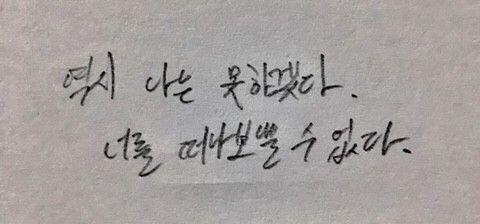 역시 나는 못하겠다.
너를 떠나보낼 수 없다.